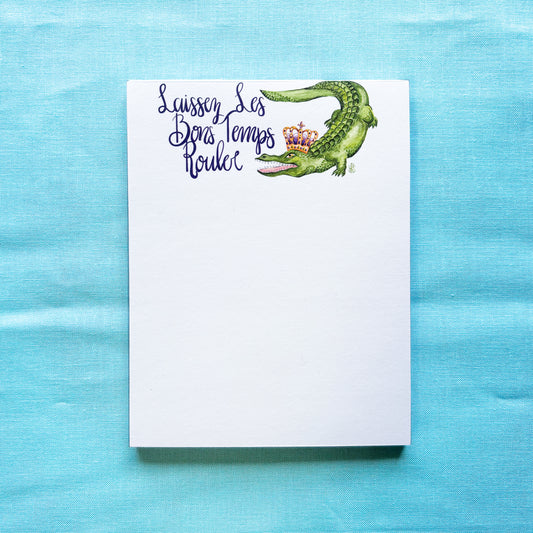 Laissez Les
Bons Temps
Rouler